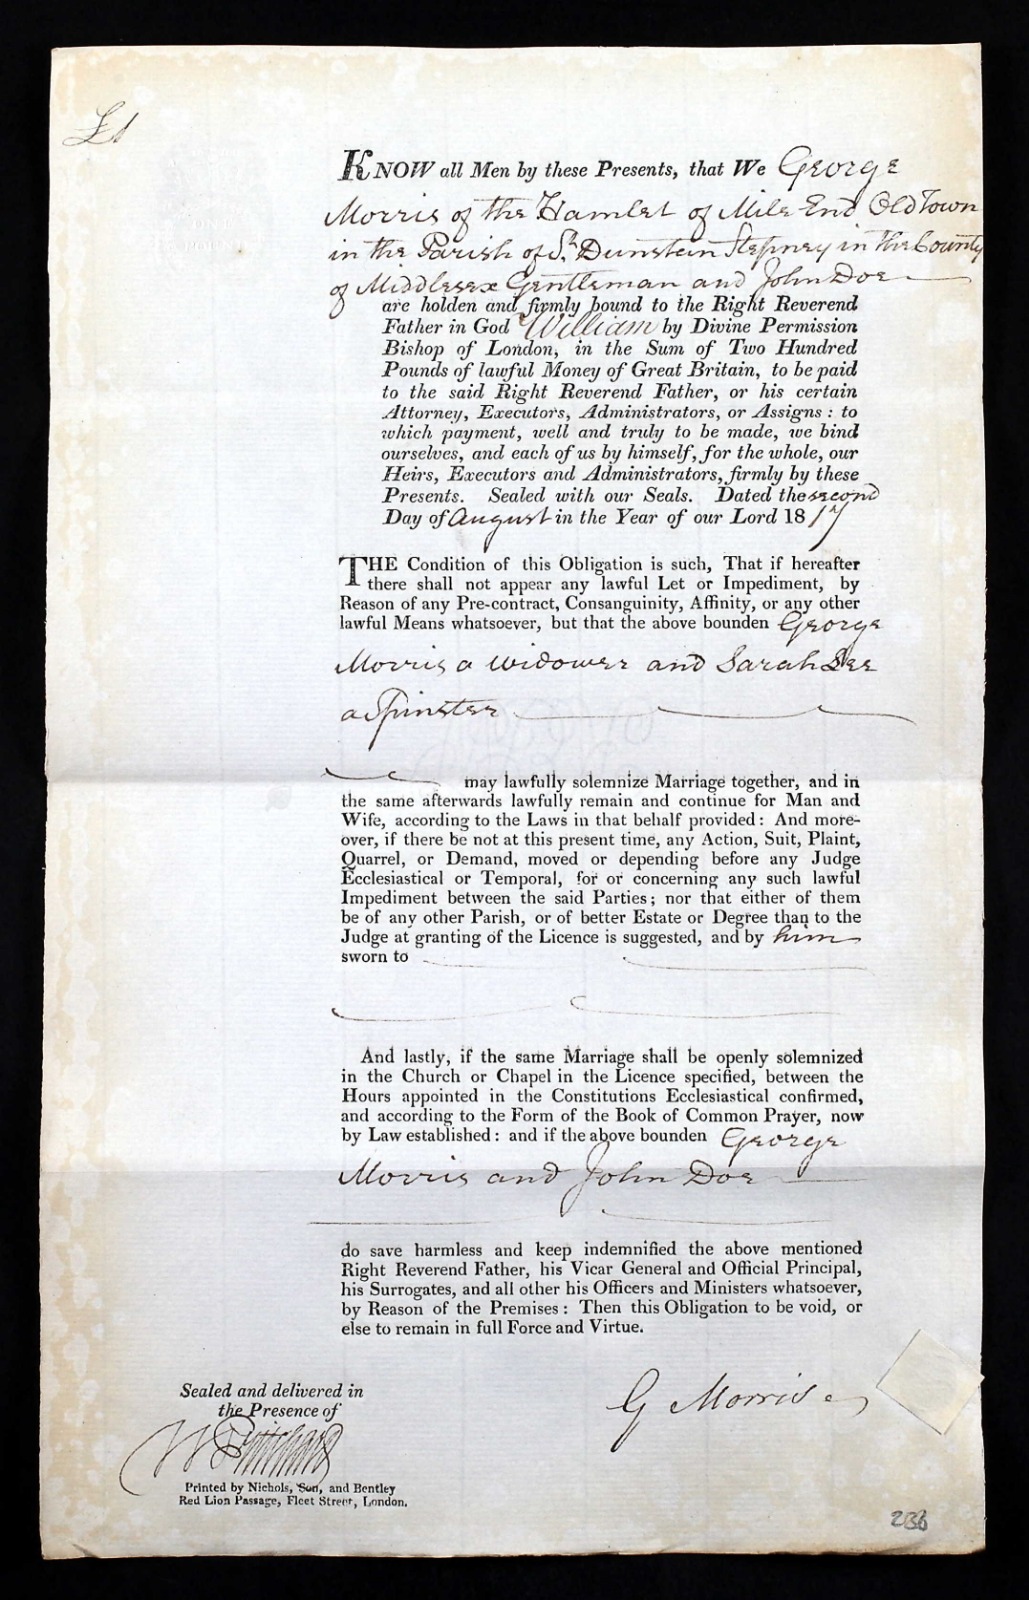 KNOW all Men by these Presents, that We George
Morris of the Hamlet of Mile End Old Town
in the Parish of St. Dunstan Stepney in the County
of Middlesex Gentleman and John Doe
are holden and firmly bound to the Right Reverend
Father in God William by Divine Permission
Bishop of London, in the Sum of Two Hundred
Pounds of lawful Money of Great Britain, to be paid
to the said Right Reverend Father, or his certain
Attorney, Executors, Administrators, or Assigns : to
which payment, well and truly to be made, we bind
ourselves, and each of us by himself, for the whole, our
Heirs, Executors and Administrators, firmly by these
Presents. Sealed with our Seals. Dated the second
Day of August in the Year of our Lord 1817
THE Condition of this Obligation is such, That if hereafter
there shall not appear any lawful Let or Impediment, by
Reason of any Pre-contract, Consanguinity, Affinity, or any other
lawful Means whatsoever, but that the above bounden George
Morris a widower and Sarah Lee
a Spinster
may lawfully solemnize Marriage together, and in
the same afterwards lawfully remain and continue for Man and
Wife, according to the Laws in that behalf provided : And more-
over, if there be not at this present time, any Action, Suit, Plaint,
Quarrel, or Demand, moved or depending before any Judge
Ecclesiastical or Temporal, for or concerning any such lawful
Impediment between the said Parties ; nor that either of them
be of any other Parish, or of better Estate or Degree than to the
Judge at granting of the Licence is suggested, and by him
sworn to
And lastly, if the same Marriage shall be openly solemnized
in the Church or Chapel in the Licence specified, between the
Hours appointed in the Constitutions Ecclesiastical confirmed,
and according to the Form of the Book of Common Prayer, now
by Law established : and if the above bounden George
Morris and John Doe
do save harmless and keep indemnified the above mentioned
Right Reverend Father, his Vicar General and Official Principal,
his Surrogates, and all other his Officers and Ministers whatsoever,
by Reason of the Premises : Then this Obligation to be void, or
else to remain in full Force and Virtue.
Sealed and delivered in
the Presence of
W Pritchard
G Morris
Printed by Nichols, Son, and Bentley
Red Lion Passage, Fleet Street, London.
236